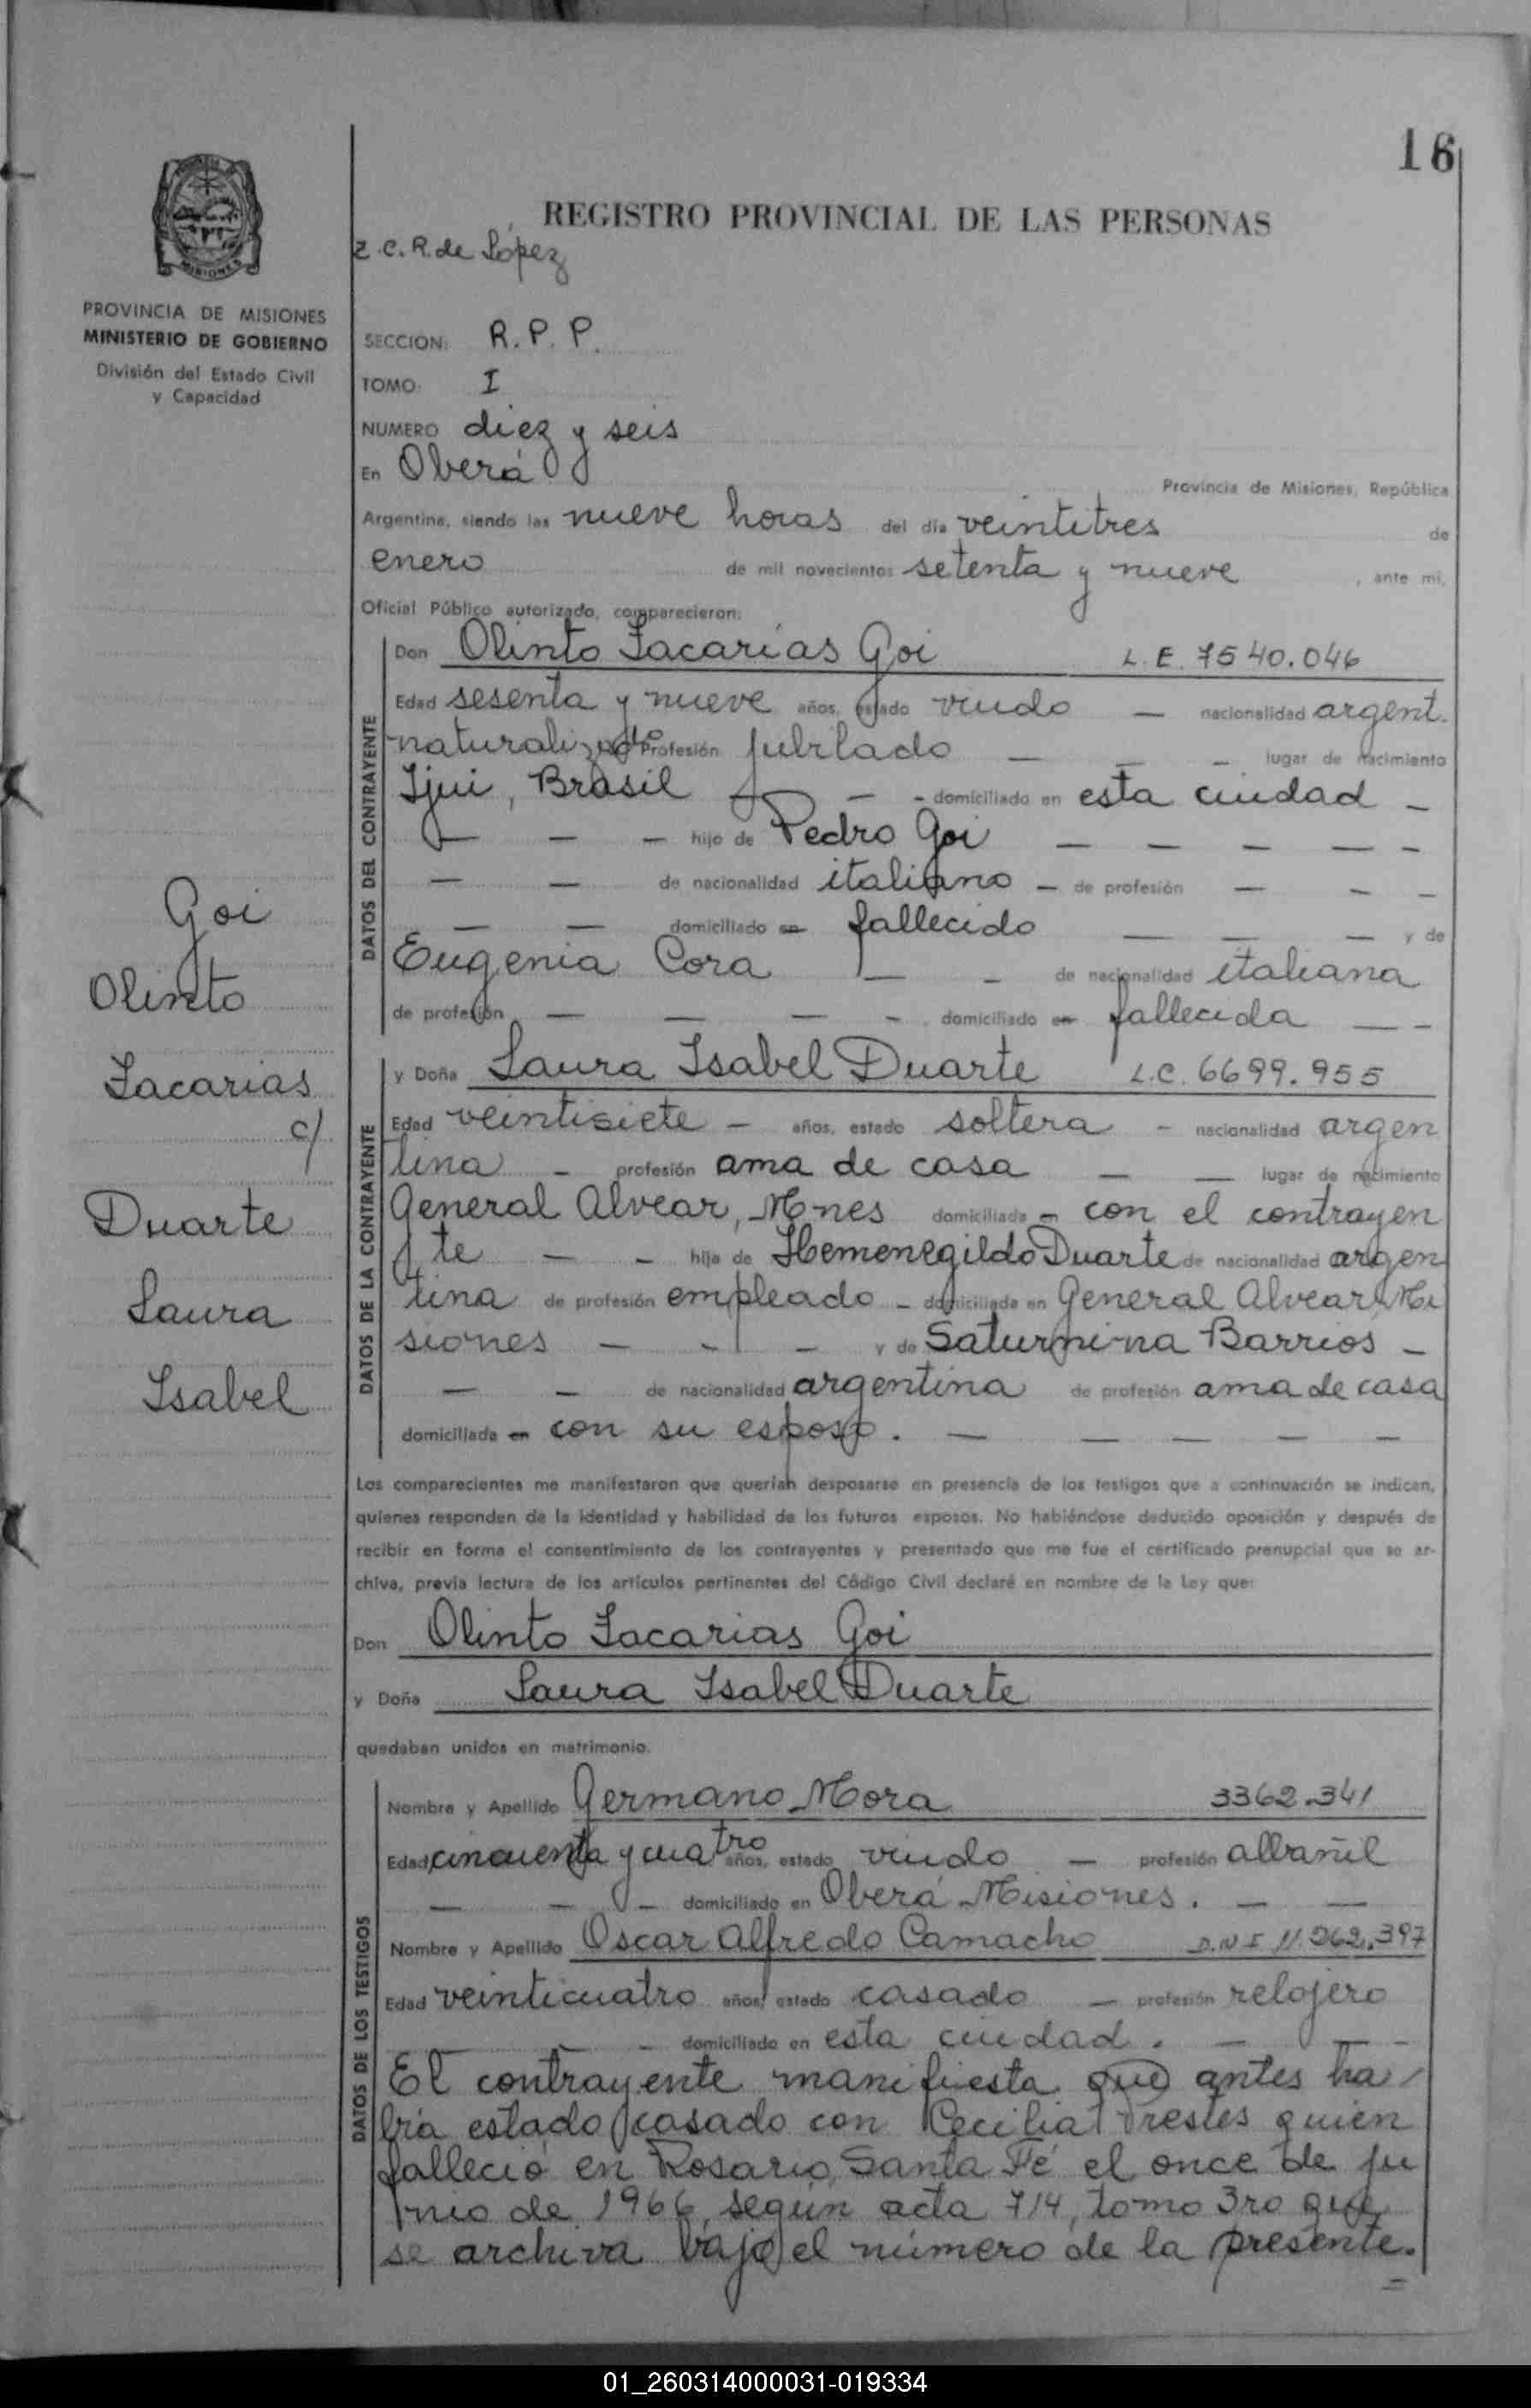 16
REGISTRO PROVINCIAL DE LAS PERSONAS
Z.C.R. de López
MISIONES
PROVINCIA DE MISIONES
MINISTERIO DE GOBIERNO
División del Estado Civil
y Capacidad
SECCION: R. P. P.
TOMO: I
NUMERO diez y seis
En Oberá
Provincia de Misiones, República
Argentina, siendo las nueve horas del día veintitres de
enero de mil novecientos setenta y nueve, ante mi,
Oficial Público autorizado, comparecieron:
DATOS DEL CONTRAYENTE
Don Olinto Zacarías Goi L.E. 7540.046
Edad sesenta y nueve años, estado viudo — nacionalidad argent.
naturalizado Profesión jubilado — — — lugar de nacimiento
Ijui, Brasil — — - domiciliado en esta ciudad —
— — — hijo de Pedro Goi — — — — —
— — de nacionalidad italiano — de profesión — — —
— — domiciliado en fallecido — — — y de
Eugenia Cora — — de nacionalidad italiana
de profesión — — — — domiciliado en fallecida — —
DATOS DE LA CONTRAYENTE
y Doña Laura Isabel Duarte L.C. 6699.955
Edad veintisiete — años, estado soltera - nacionalidad argen
tina — profesión ama de casa — — lugar de nacimiento
General Alvear, Mnes domiciliada - con el contrayen
te — — hija de Hemenegildo Duarte de nacionalidad argen
tina de profesión empleado — domiciliada en General Alvear, Mi
siones — — — y de Saturnina Barrios —
— — de nacionalidad argentina de profesión ama de casa
domiciliada en con su esposo. — — — — —
Los comparecientes me manifestaron que querían desposarse en presencia de los testigos que a continuación se indican,
quienes responden de la identidad y habilidad de los futuros esposos. No habiéndose deducido oposición y después de
recibir en forma el consentimiento de los contrayentes y presentado que me fue el certificado prenupcial que se ar-
chiva, previa lectura de los artículos pertinentes del Código Civil declaré en nombre de la Ley que:
Don Olinto Zacarias Goi
y Doña Laura Isabel Duarte
quedaban unidos en matrimonio.
DATOS DE LOS TESTIGOS
Nombre y Apellido Germano Mora 3362.341
Edad cincuenta y cuatro años, estado viudo — profesión albañil
— — — domiciliado en Oberá Misiones. — —
Nombre y Apellido Oscar Alfredo Camacho D.N.I 11.262.397
Edad veinticuatro años, estado casado — profesión relojero
— — domiciliado en esta ciudad. — — -
El contrayente manifiesta que antes ha
bía estado casado con Cecilia Prestes quien
falleció en Rosario, Santa Fé el once de ju
nio de 1966, según acta 714, tomo 3ro que
se archiva bajo el número de la presente.
Goi
Olinto
Zacarias
c/
Duarte
Laura
Isabel
01_260314000031-019334